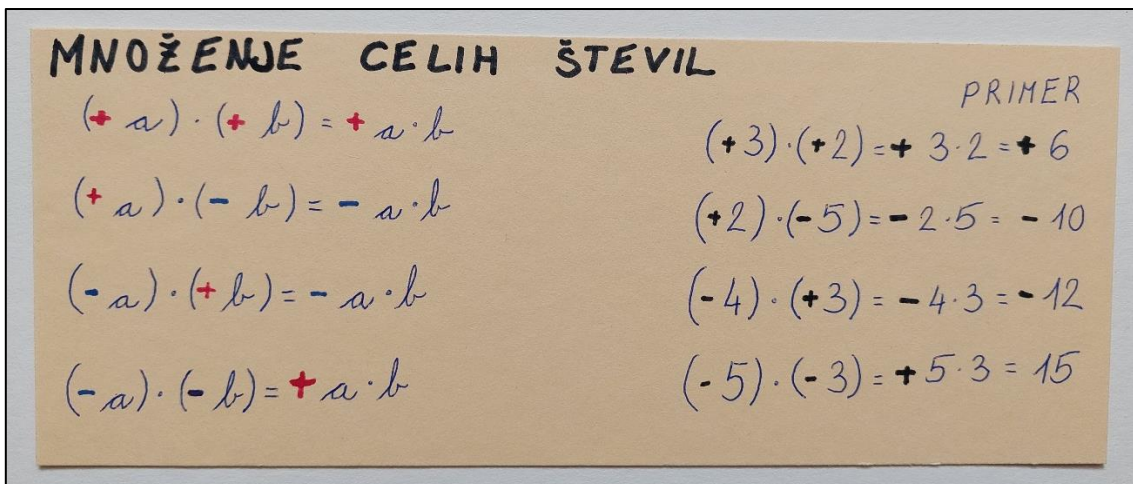 MNOŽENJE CELIH ŠTEVIL
(+ a) · (+ b) = + a · b
(+ a) · (- b) = - a · b
(- a) · (+ b) = - a · b
(- a) · (- b) = + a · b
PRIMER
(+3) · (+2) = + 3 · 2 = + 6
(+2) · (-5) = - 2 · 5 = - 10
(-4) · (+3) = - 4 · 3 = - 12
(-5) · (-3) = + 5 · 3 = 15